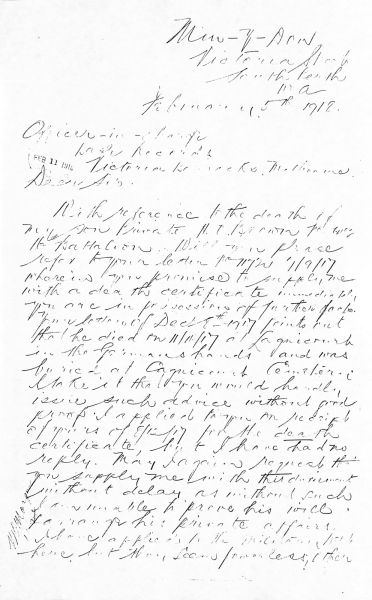 Victoria
South Perth
W A
February 5th 1918.
Officer-in-Charge
Base Records
FEB 11 1918
Victoria Barracks, Melbourne
Dear Sir.
With reference to the death of
my son Private H. T. Brown
Battalion. Will you please
refer to your letter to me 1/9/17
wherein you promise to supply me
with a death certificate immediately
you are in possession of further facts
Your letter of Decr 17 points out
that he died on 11/4/17 at Cagnicourt
in the Germans hands and was
buried at Cagnicourt Cemetery.
I take it that you would hardly
issue such advice without good
proof. I applied to you on receipt
of yours of for the death
certificate, but I have had no
reply. May I again request that
you supply me with this document
without delay as without such
I am unable to prove his will
& arrange his private affairs.
I have applied to the military
here but they seem powerless, other